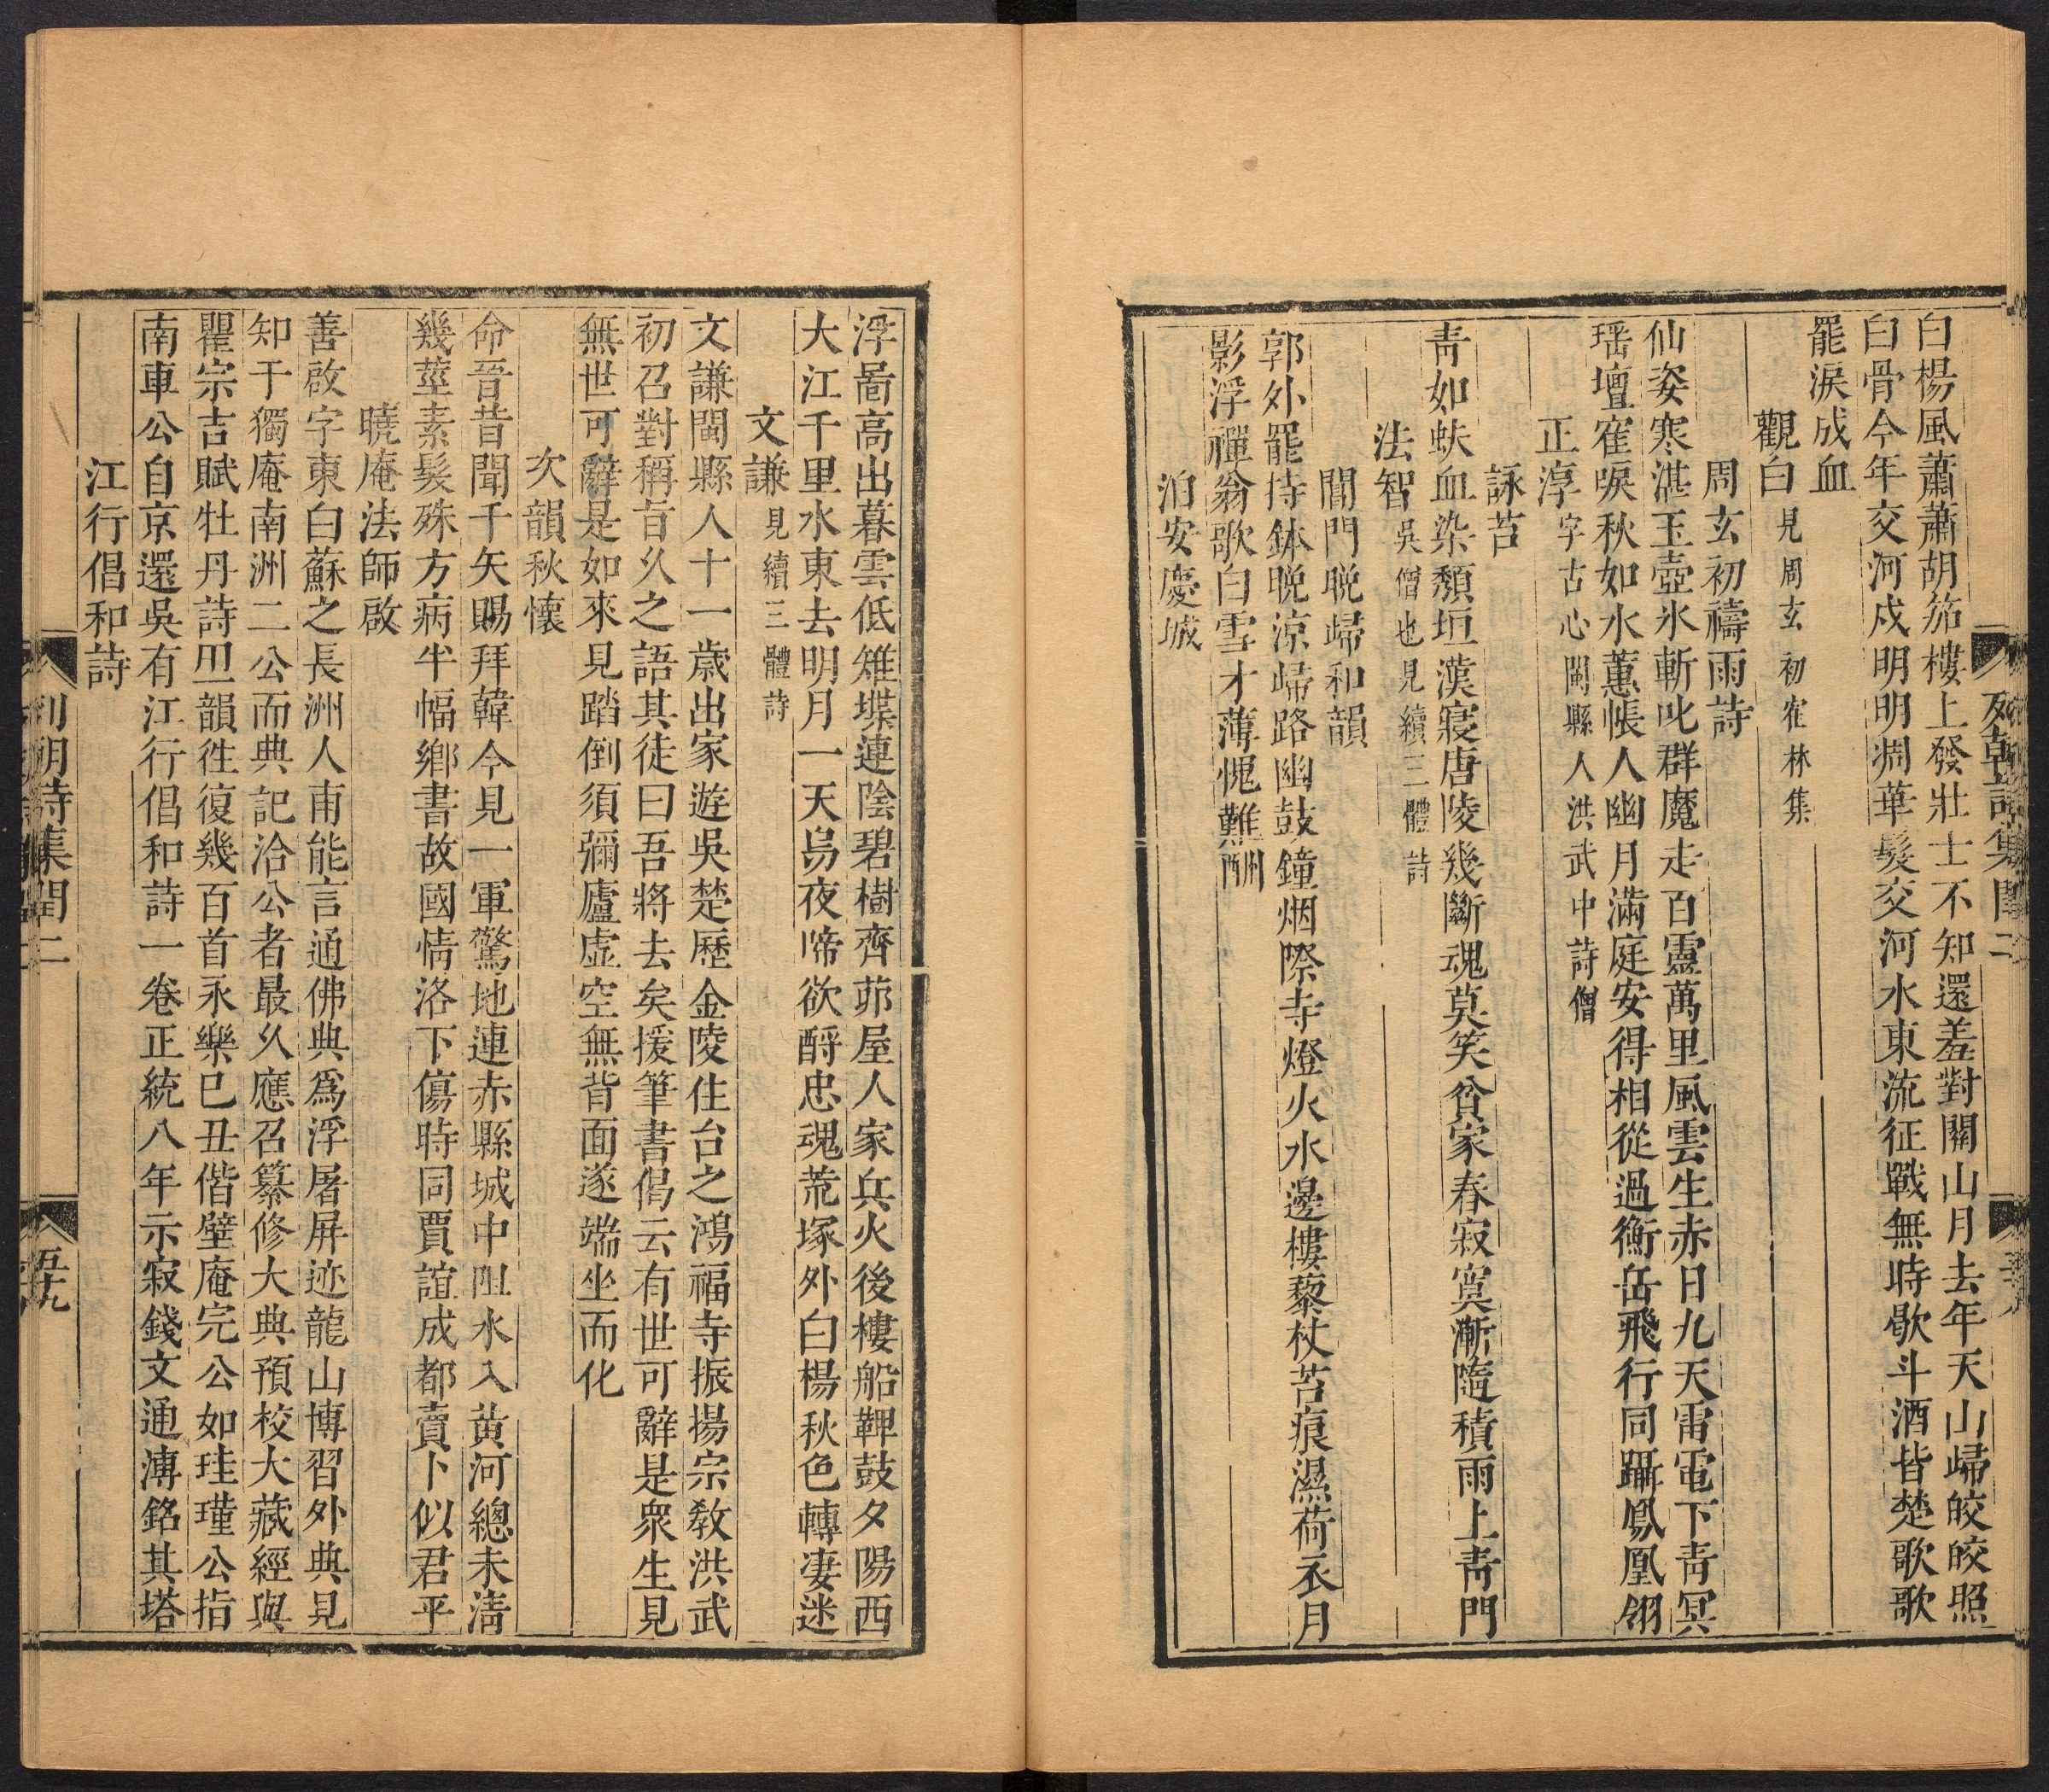 白楊風蕭蕭胡笳樓上發壯士不知還羞對關山月去年天山歸皎皎照
白骨今年交河戍明明凋華髮交河水東流征戰無時歇斗酒皆楚歌歌
罷淚成血
觀白見周玄初寉林集
周玄初禱雨詩
仙姿寒湛玉壺氷斬叱群魔走百靈萬里風雲生赤日九天雷電下靑冥
瑶壇寉唳秋如水蕙帳人幽月滿庭安得相從過衡岳飛行同躡鳳凰翎
正淳字古心閩縣人洪武中詩僧
詠苔
靑如蚨血染頹垣漢寢唐陵幾斷魂莫笑貧家春寂寞漸隨積雨上靑門
法智吳僧也見續三體詩
閶門晚歸和韻
郭外罷持鉢晚涼歸路幽鼓鐘烟際寺燈火水邊樓藜杖苔痕濕荷衣月
影浮禪翁歌白雪才薄愧難酬
泊安慶城
列朝詩集閏二
浮啚高出暮雲低雉堞連陰碧樹齊茆屋人家兵火後樓船鞞鼓夕陽西
大江千里水東去明月一天烏夜啼欲酹忠魂荒塚外白楊秋色轉凄迷
文謙見續三體詩
文謙閩縣人十一歲出家遊吳楚歷金陵住台之鴻福寺振揚宗敎洪武
初召對稱旨久之語其徒曰吾將去矣援筆書偈云有世可辭是衆生見
無世可辭是如來見踏倒須彌廬虛空無背面遂端坐而化
次韻秋懷
命晉昔聞千矢賜拜韓今見一軍驚地連赤縣城中阻水入黃河總未淸
幾莖素髮殊方病半幅鄉書故國情洛下傷時同賈誼成都賣卜似君平
曉庵法師啟
善啟字東白蘇之長洲人甫能言通佛典爲浮屠屏迹龍山博習外典見
知于獨庵南洲二公而典記洽公者最久應召纂修大典預校大藏經與
瞿宗吉賦牡丹詩用一韻徃復幾百首永樂己丑偕壁庵完公如珪瑾公指
南車公自京還吳有江行倡和詩一卷正統八年示寂錢文通溥銘其塔
江行倡和詩
列朝詩集閏二
五十九